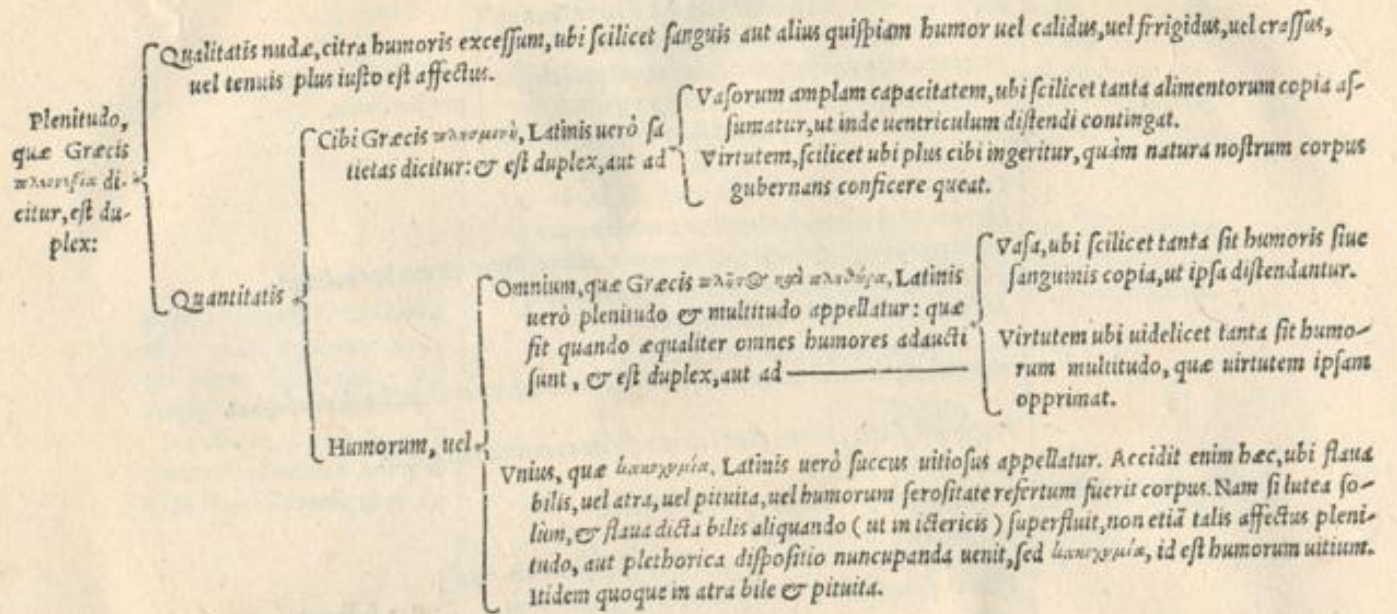 Qualitatis nudæ, citra humoris excessum, ubi scilicet sanguis aut alius quispiam humor uel calidus, uel frrigidus, uel crassus,
uel tenuis plus iusto est affectus.
Plenitudo,
quæ Græcis
di-
citur, est du-
plex:
Cibi Græcis, Latinis uerò sa
tietas dicitur: & est duplex, aut ad
Vasorum amplam capacitatem, ubi scilicet tanta alimentorum copia as-
sumatur, ut inde uentriculum distendi contingat.
Virtutem, scilicet ubi plus cibi ingeritur, quàm natura nostrum corpus
gubernans conficere queat.
Quantitatis
Humorum, uel
Omnium, quæ Græcis πλῆθος καὶ πληθώρα, Latinis
uerò plenitudo & multitudo appellatur: quæ
fit quando æqualiter omnes humores adaucti
sunt, & est duplex, aut ad
Vasa, ubi scilicet tanta sit humoris siue
sanguinis copia, ut ipsa distendantur.
Virtutem ubi uidelicet tanta sit humo-
rum multitudo, quæ uirtutem ipsam
opprimat.
Vnius, quæ κακοχυμία, Latinis uerò succus uitiosus appellatur. Accidit enim hæc, ubi flaua
bilis, uel atra, uel pituita, uel humorum serositate refertum fuerit corpus. Nam si lutea so-
lùm, & flaua dicta bilis aliquando ( ut in ictericis ) superfluit, non etiã talis affectus pleni-
tudo, aut plethorica dispositio nuncupanda uenit, sed κακοχυμία, id est humorum uitium.
Itidem quoque in atra bile & pituita.